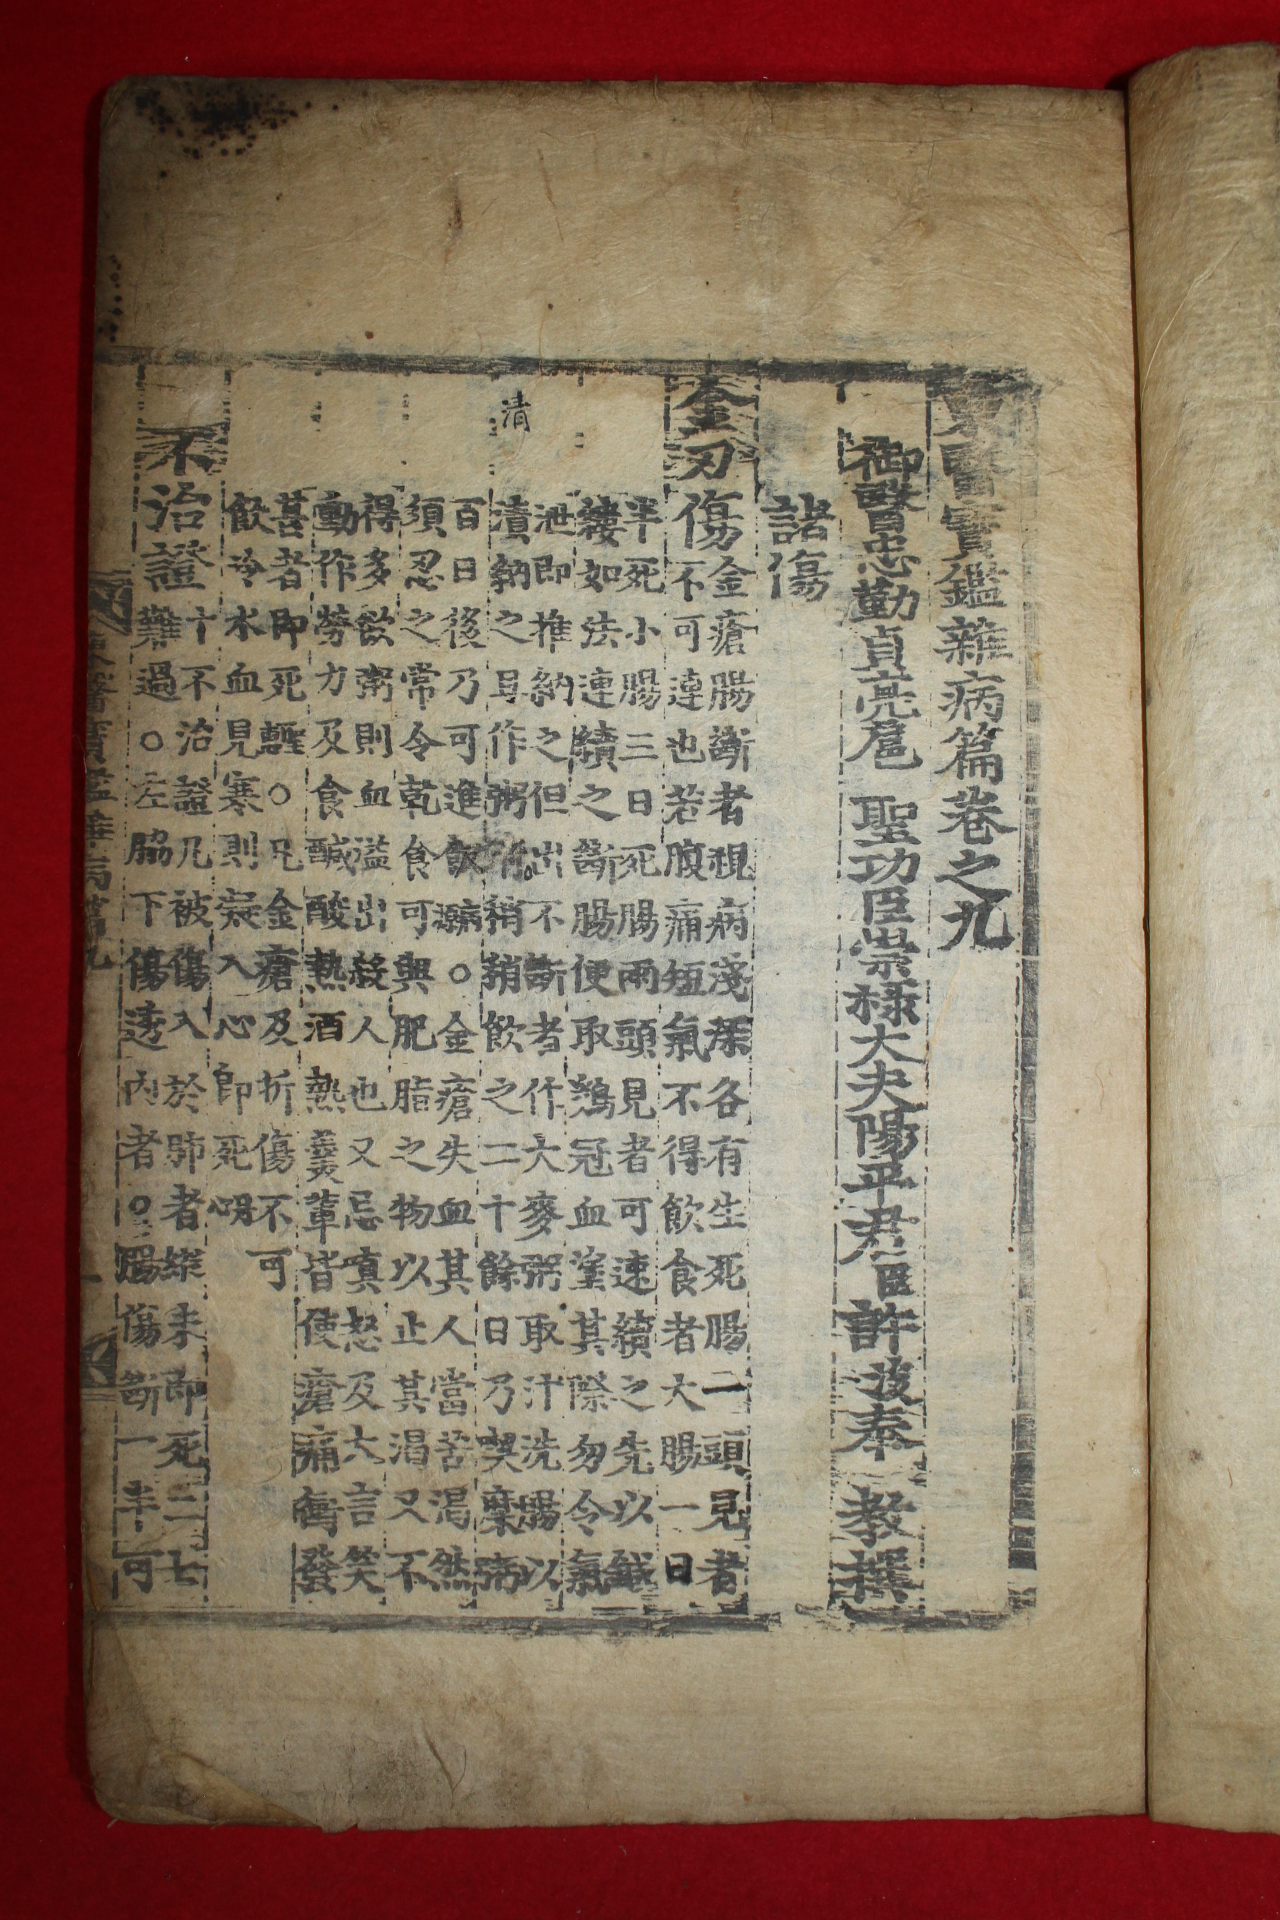 東醫寶鑑雜病篇卷之九
御醫忠勤貞亮扈 聖功臣崇祿大夫陽平君臣許浚奉 教撰
諸傷
金刃傷
金瘡腸斷者視病淺深各有生死腸一頭見者
不可連也若腹痛短氣不得飲食者大腸一日
半死小腸三日死腸兩頭見者可速續之先以鍼
縷如法連續之斷腸便取鷄冠血塗其際勿令氣
清
泄即推納之但出不斷者作大麥粥取汁洗腸以
漬納之且作粥稍稍飲之二十餘日乃喫糜粥
百日後乃可進飯○金瘡失血其人當苦渴然
須忍之常令乾食可與肥脂之物以止其渴又不
得多飲粥則血溢出殺人也又忌嗔怒及大言笑
動作勞力及食鹹酸熱酒熱羹輩皆使瘡痛衝發
甚者即死○凡金瘡及折傷不可
飲冷水血見寒則凝入心即死
不治證
十不治證凡被傷入於肺者縱未即死二七
難過○左脇下傷透內者○腸傷斷一半可
東醫寶鑑雜病篇九
一